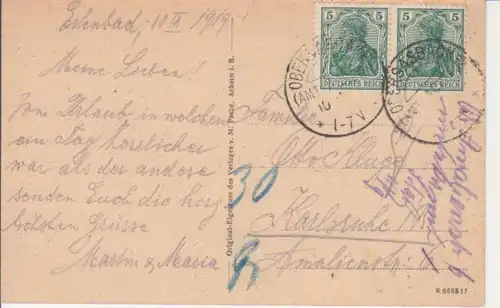 Erlenbad, 10 IX 1919.
Meine Lieben!
Vom Urlaub in welchem
ein Tag köstlicher
war als der andere
senden Euch die herz
lichsten Grüsse
Martin & Maria
Original-Eigentum des Verlages v. M. Pache, Achern i. B.
5 5
5 5
DEUTSCHES REICH
DEUTSCHES REICH
OBERSASBACH
(AMT
10
* 1-7 V
OBERSASBACH
Familie
Otto Kluge
Karlsruhe
Amalienstr.
30